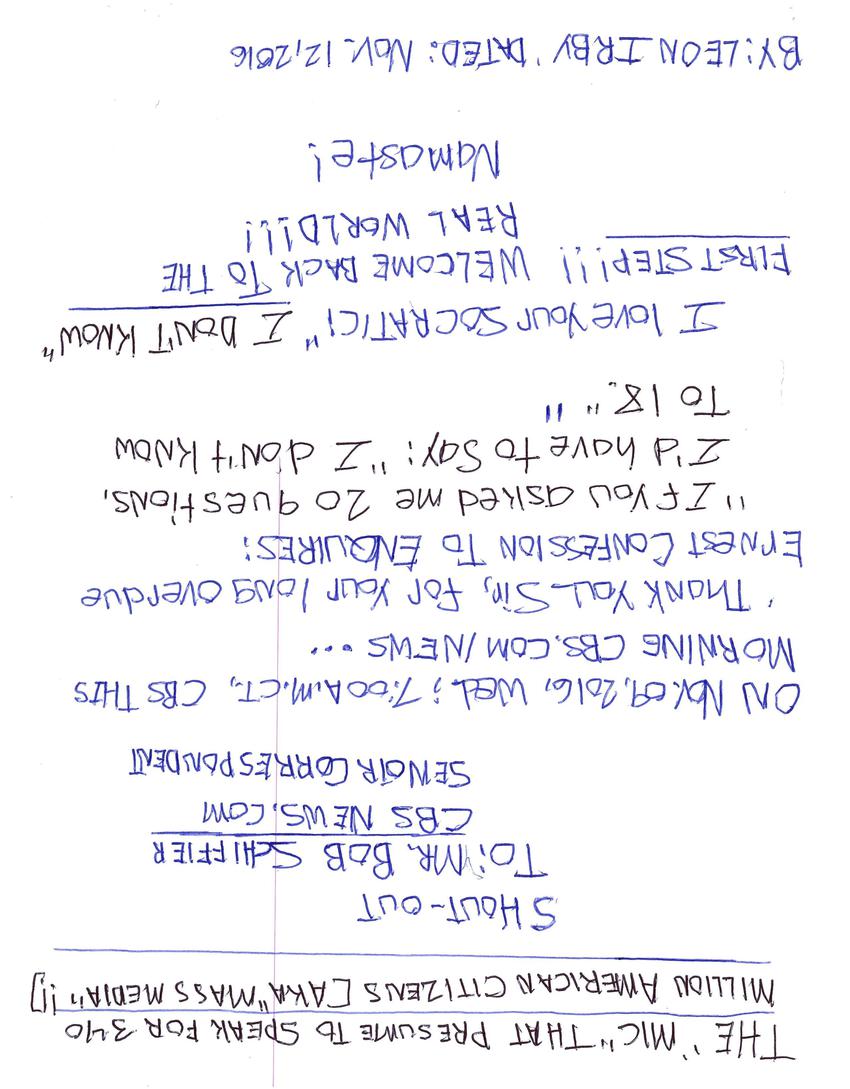 THE "MIC" THAT PRESUME TO SPEAK FOR 340
MILLION AMERICAN CITIZENS [AKA "MASS MEDIA"!;]
SHOUT-OUT
TO: MR. BOB SCHIFFIER
CBS NEWS.COM
SENOIR CORRESPONDENT
ON NOV. 09, 2016, WED.; 7:00 A.M. CT., CBS THIS
MORNING CBS.COM/NEWS ...
'THANK YOU SIR, for your long overdue
Ernest CONFESSION TO ENQUIRES:
"If you asked me 20 questions,
I'd have to say: "I don't know
TO 18." "
I love your SOCRATIC; "I DON'T KNOW"
FIRST STEP!!! WELCOME BACK TO THE
REAL WORLD!!!
Namaste!
BY: LEON IRBY 'DATED: NOV. 12, 2016